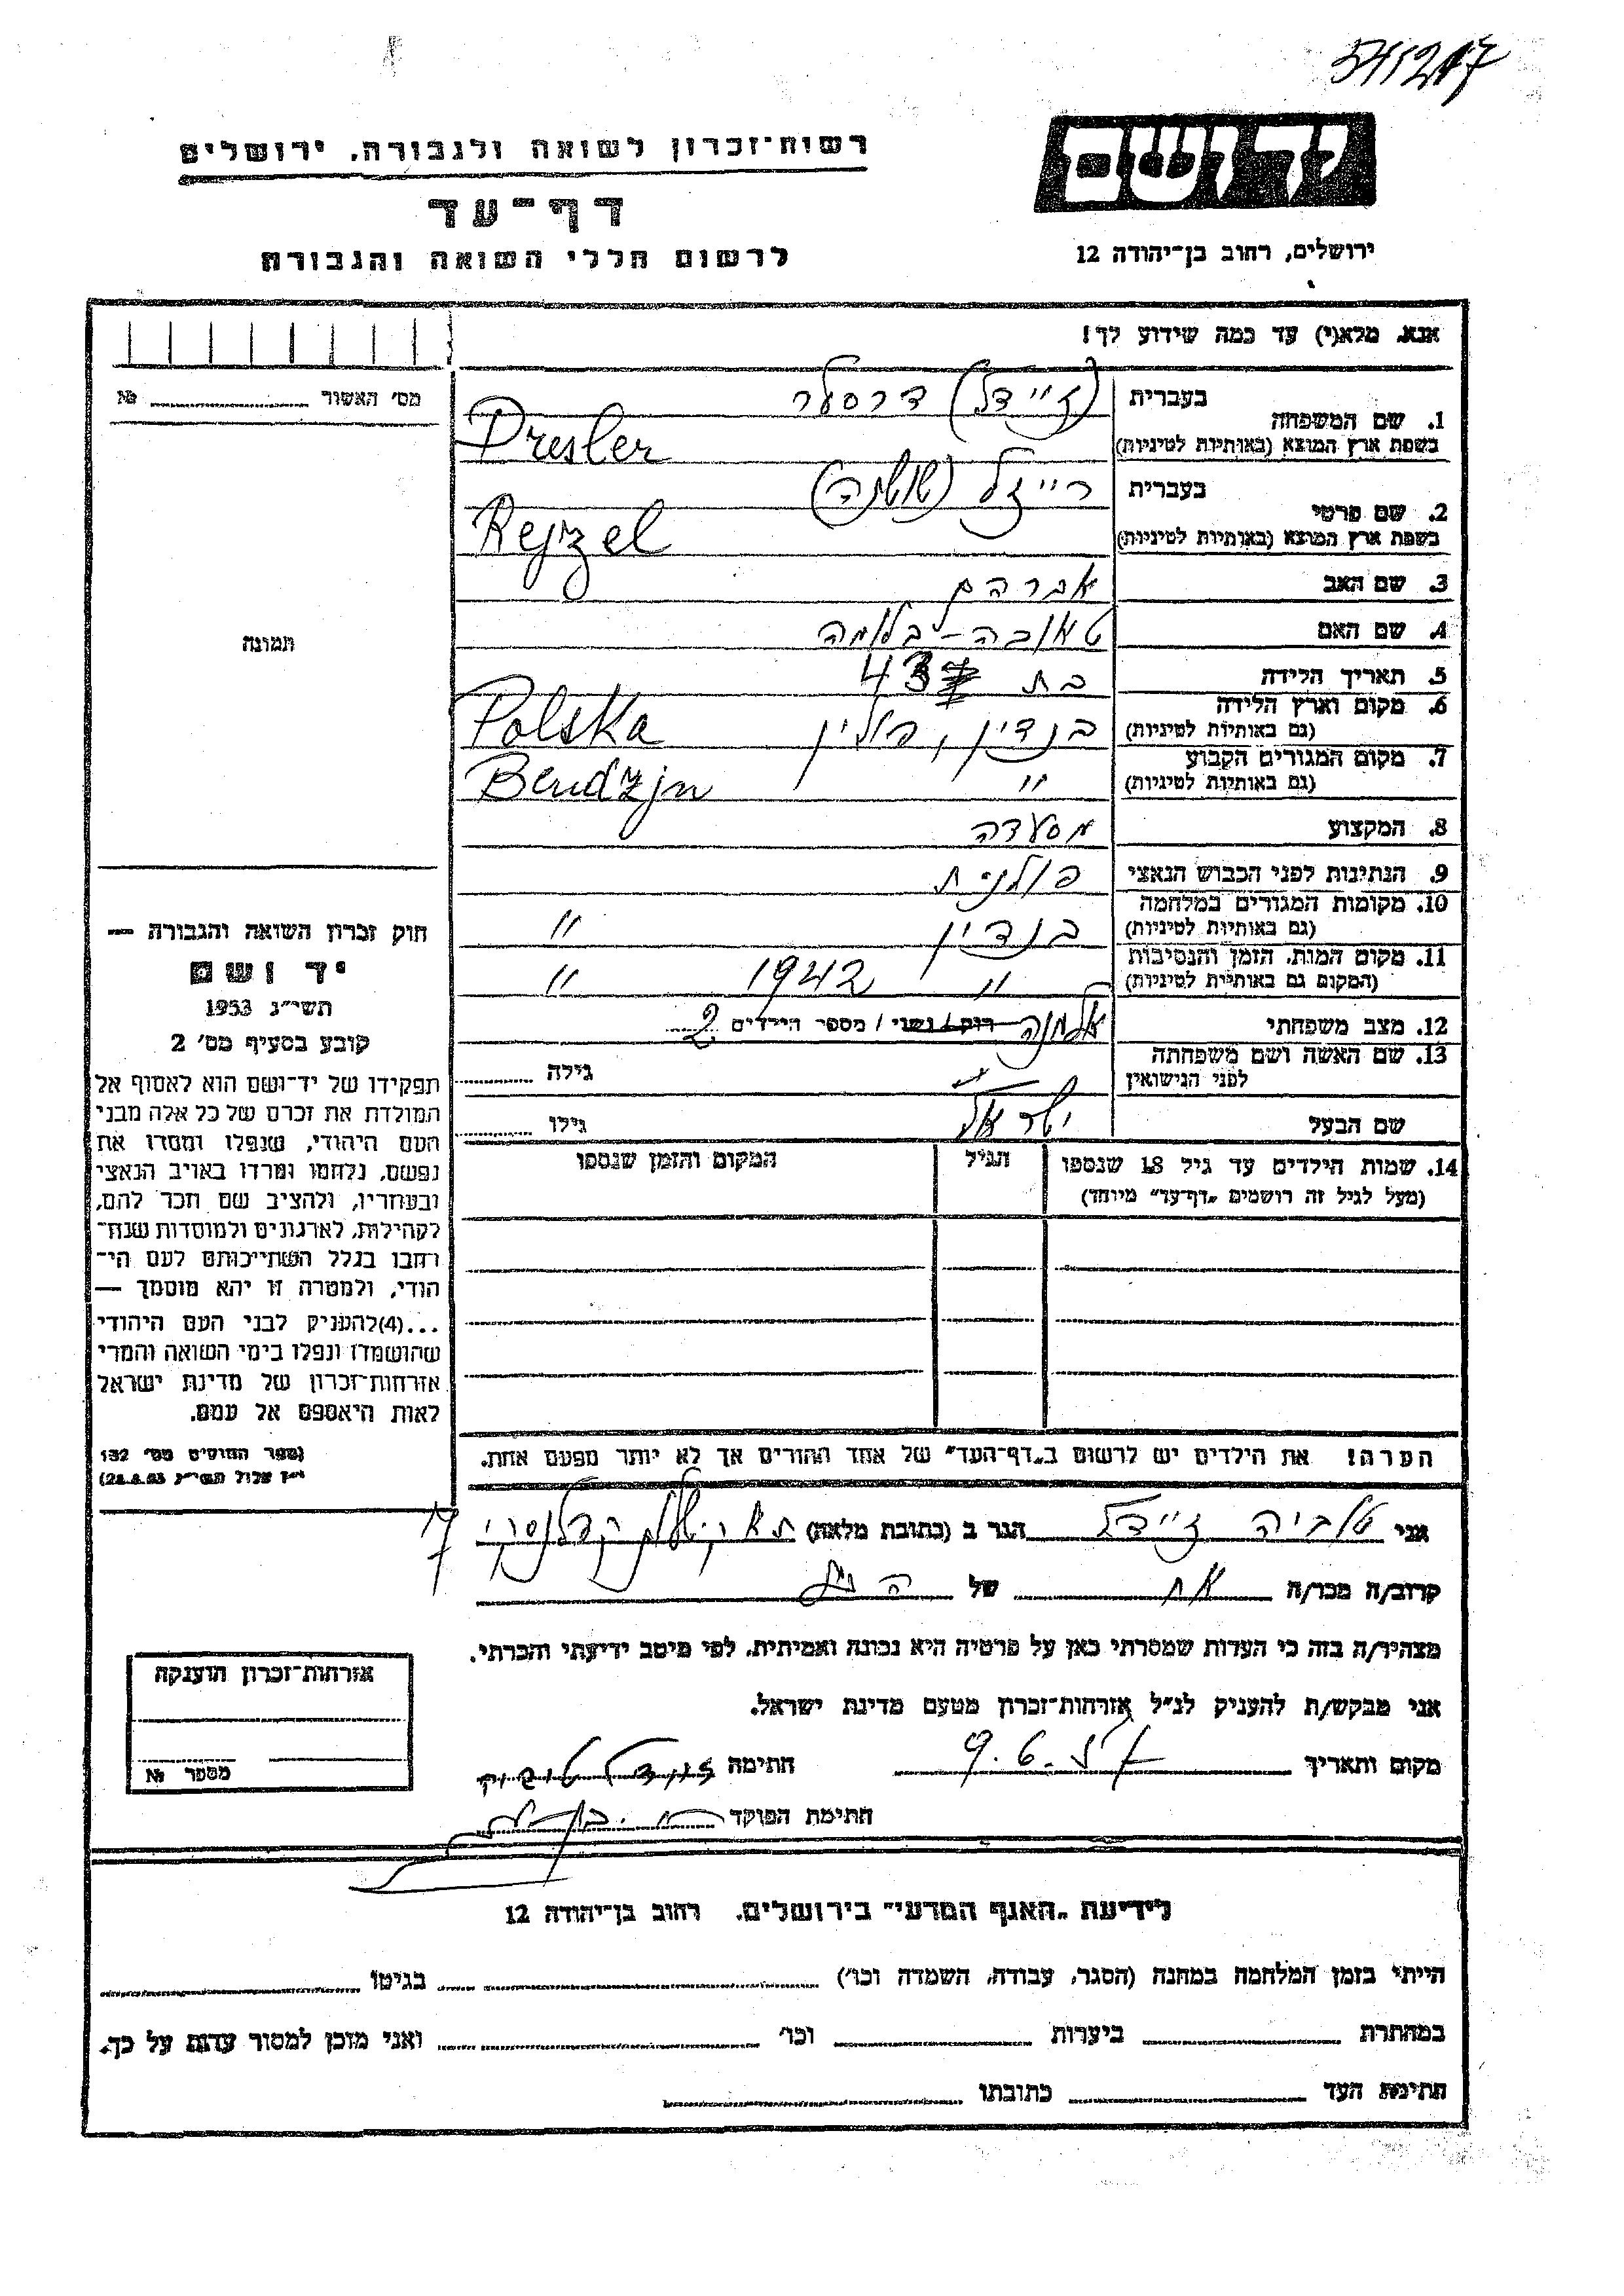 541217
יד ושם
ירושלים, רחוב בן־יהודה 12
רשות־זכרון לשואה ולגבורה, ירושלים
דף־עד
לרשום חללי השואה והגבורה
אנא, מלא(י) עד כמה שידוע לך!
מס׳ האשור № ........
1. שם המשפחה בעברית (זיידל) דרסלר
בשפת ארץ המוצא (באותיות לטיניות) Dresler
2. שם פרטי בעברית רייזל (שושנה)
בשפת ארץ המוצא (באותיות לטיניות) Rejzel
3. שם האב אברהם
4. שם האם טאובה-בלומה
5. תאריך הלידה בת 43
6. מקום וארץ הלידה (גם באותיות לטיניות) בנדין, פולין Polska
7. מקום המגורים הקבוע (גם באותיות לטיניות) " Bendzjn
8. המקצוע מסעדה
9. הנתינות לפני הכבוש הנאצי פולנית
10. מקומות המגורים במלחמה (גם באותיות לטיניות) בנדין "
11. מקום המות, הזמן והנסיבות (המקום גם באותיות לטיניות) " 1942 "
12. מצב משפחתי אלמנה רוק / נשוי / מספר הילדים 2
13. שם האשה ושם משפחתה לפני הנישואין גילה ........
שם הבעל ישראל גילו ........
14. שמות הילדים עד גיל 18 שנספו הגיל המקום והזמן שנספו
(מעל לגיל זה רושמים „דף־עד" מיוחד)
הערה! את הילדים יש לרשום ב„דף־העד" של אחד ההורים אך לא יותר מפעם אחת.
תמונה
חוק זכרון השואה והגבורה —
יד ושם
תשי״ג 1953
קובע בסעיף מס׳ 2
תפקידו של יד־ושם הוא לאסוף אל
המולדת את זכרם של כל אלה מבני
העם היהודי, שנפלו ומסרו את
נפשם, נלחמו ומרדו באויב הנאצי
ובעוזריו, ולהציב שם וזכר להם,
לקהילות, לארגונים ולמוסדות שנח־
רבו בגלל השתייכותם לעם הי־
הודי, ולמטרה זו יהא מוסמך —
...(4)להעניק לבני העם היהודי
שהושמדו ונפלו בימי השואה והמרי
אזרחות־זכרון של מדינת ישראל
לאות היאספם אל עמם.
(ספר החוקים מס׳ 132
י״ז אלול תשי״ג 28.8.53)
אני טוביה זיידל הגר ב (כתובת מלאה) ת״א 17
קרוב/ה מכר/ה של
מצהיר/ה בזה כי העדות שמסרתי כאן על פרטיה היא נכונה ואמיתית, לפי מיטב ידיעתי והכרתי.
אני מבקש/ת להעניק לנ״ל אזרחות־זכרון מטעם מדינת ישראל.
מקום ותאריך 9.6 חתימה זיידל טוביה
חתימת הפוקד
אזרחות־זכרון הוענקה
מספר №
לידיעת „האגף המדעי" בירושלים, רחוב בן־יהודה 12
הייתי בזמן המלחמה במחנה (הסגר, עבודה, השמדה וכו׳) בגיטו
במחתרת ביערות וכו׳ ואני מוכן למסור עדות על כך.
חתימת העד כתובתו